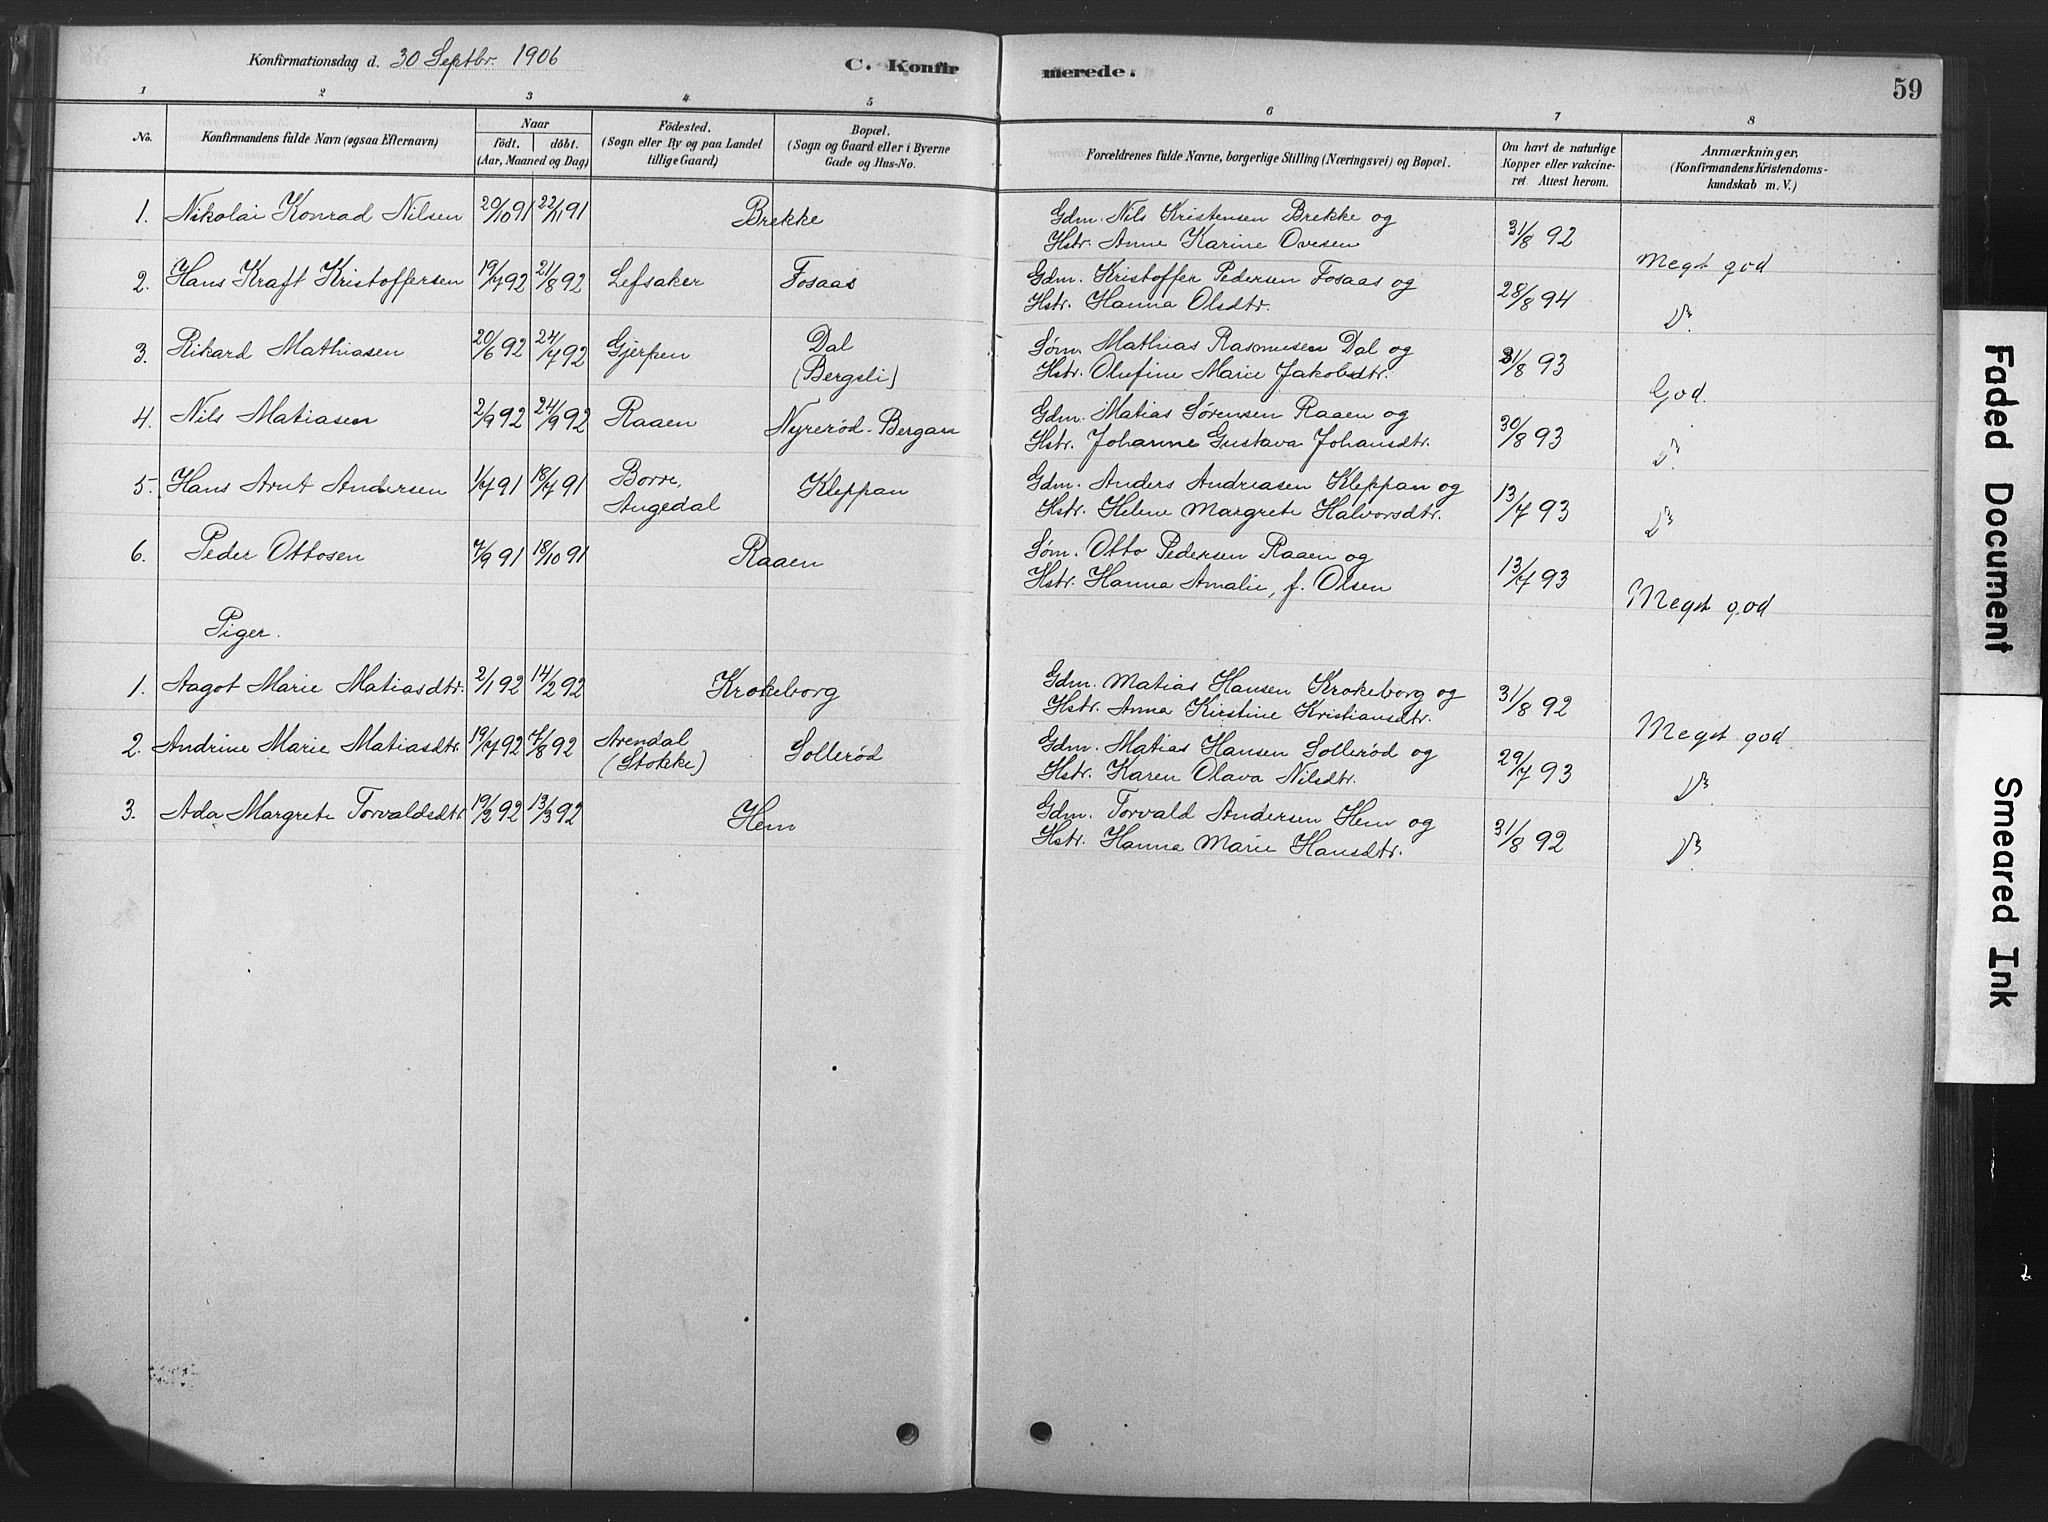 Konfirmationsdag d. 30 Septbr. 1906
C. Konfirmerede.
59
1 2 3 4 5 6 7 8
No.
Konfirmandens fulde Navn (ogsaa Efternavn)
Naar
födt. döbt.
(Aar, Maaned og Dag)
Födested.
(Sogn eller By og paa Landet
tillige Gaard)
Bopæl.
(Sogn og Gaard eller i Byerne
Gade og Hus-No.
Forældrenes fulde Navne, borgerlige Stilling (Næringsvei) og Bopæl.
Om havt de naturlige
Kopper eller vakcine-
ret Attest herom.
Anmærkninger.
(Konfirmandens Kristendoms-
kundskab m. V.)
1. Nikolai Konrad Nilsen 20/10 91 22/11 91 Brekke
Gdm. Nils Kristensen Brekke og
Hstr. Anne Karine Ovesen 31/8 92 Meget god
2. Hans Kraft Kristoffersen 19/7 92 21/8 92 Lefsaker Fosaas
Gdm. Kristoffer Pedersen Fosaas og
Hstr. Hanna Olsdtr. 28/8 94 do
3. Rikard Mathiasen 20/6 92 24/7 92 Gjerpen Dal
(Bergsli)
Søm. Mathias Rasmusen Dal og
Hstr. Olufine Marie Jakobsdtr. 31/8 93 God.
4. Nils Matiasen 2/9 92 24/9 92 Raaen Nyrerød-Bergan
Gdm. Matias Sørensen Raaen og
Hstr. Johanne Gustava Johansdtr. 30/8 93 do
5. Hans Arnt Andersen 1/7 91 18/7 91 Borre,
Angedal Kleppan
Gdm. Anders Andreasen Kleppan og
Hstr. Helene Margrete Halvorsdtr. 13/7 93 do
6. Peder Ottosen 7/9 91 18/10 91 Raaen
Søm. Otto Pedersen Raaen og
Hstr. Hanna Amalie, f. Olsen 13/7 93 Meget god
Piger.
1. Aagot Marie Matiasdtr. 2/1 92 14/2 92 Krokeborg
Gdm. Matias Hansen Krokeborg og
Hstr. Anna Kirstine Kristiansdtr. 31/8 92 Meget god
2. Andrine Marie Matiasdtr. 19/7 92 7/8 92 Arendal
(Stokke) Sollerød
Gdm. Matias Hansen Sollerød og
Hstr. Karen Olava Nilsdtr. 29/7 93 do
3. Ada Margrete Torvaldsdtr. 19/2 92 13/3 92 Hem
Gdm. Torvald Andersen Hem og
Hstr. Hanna Marie Hansdtr. 31/8 92 do
Faded Document
Smeared Ink